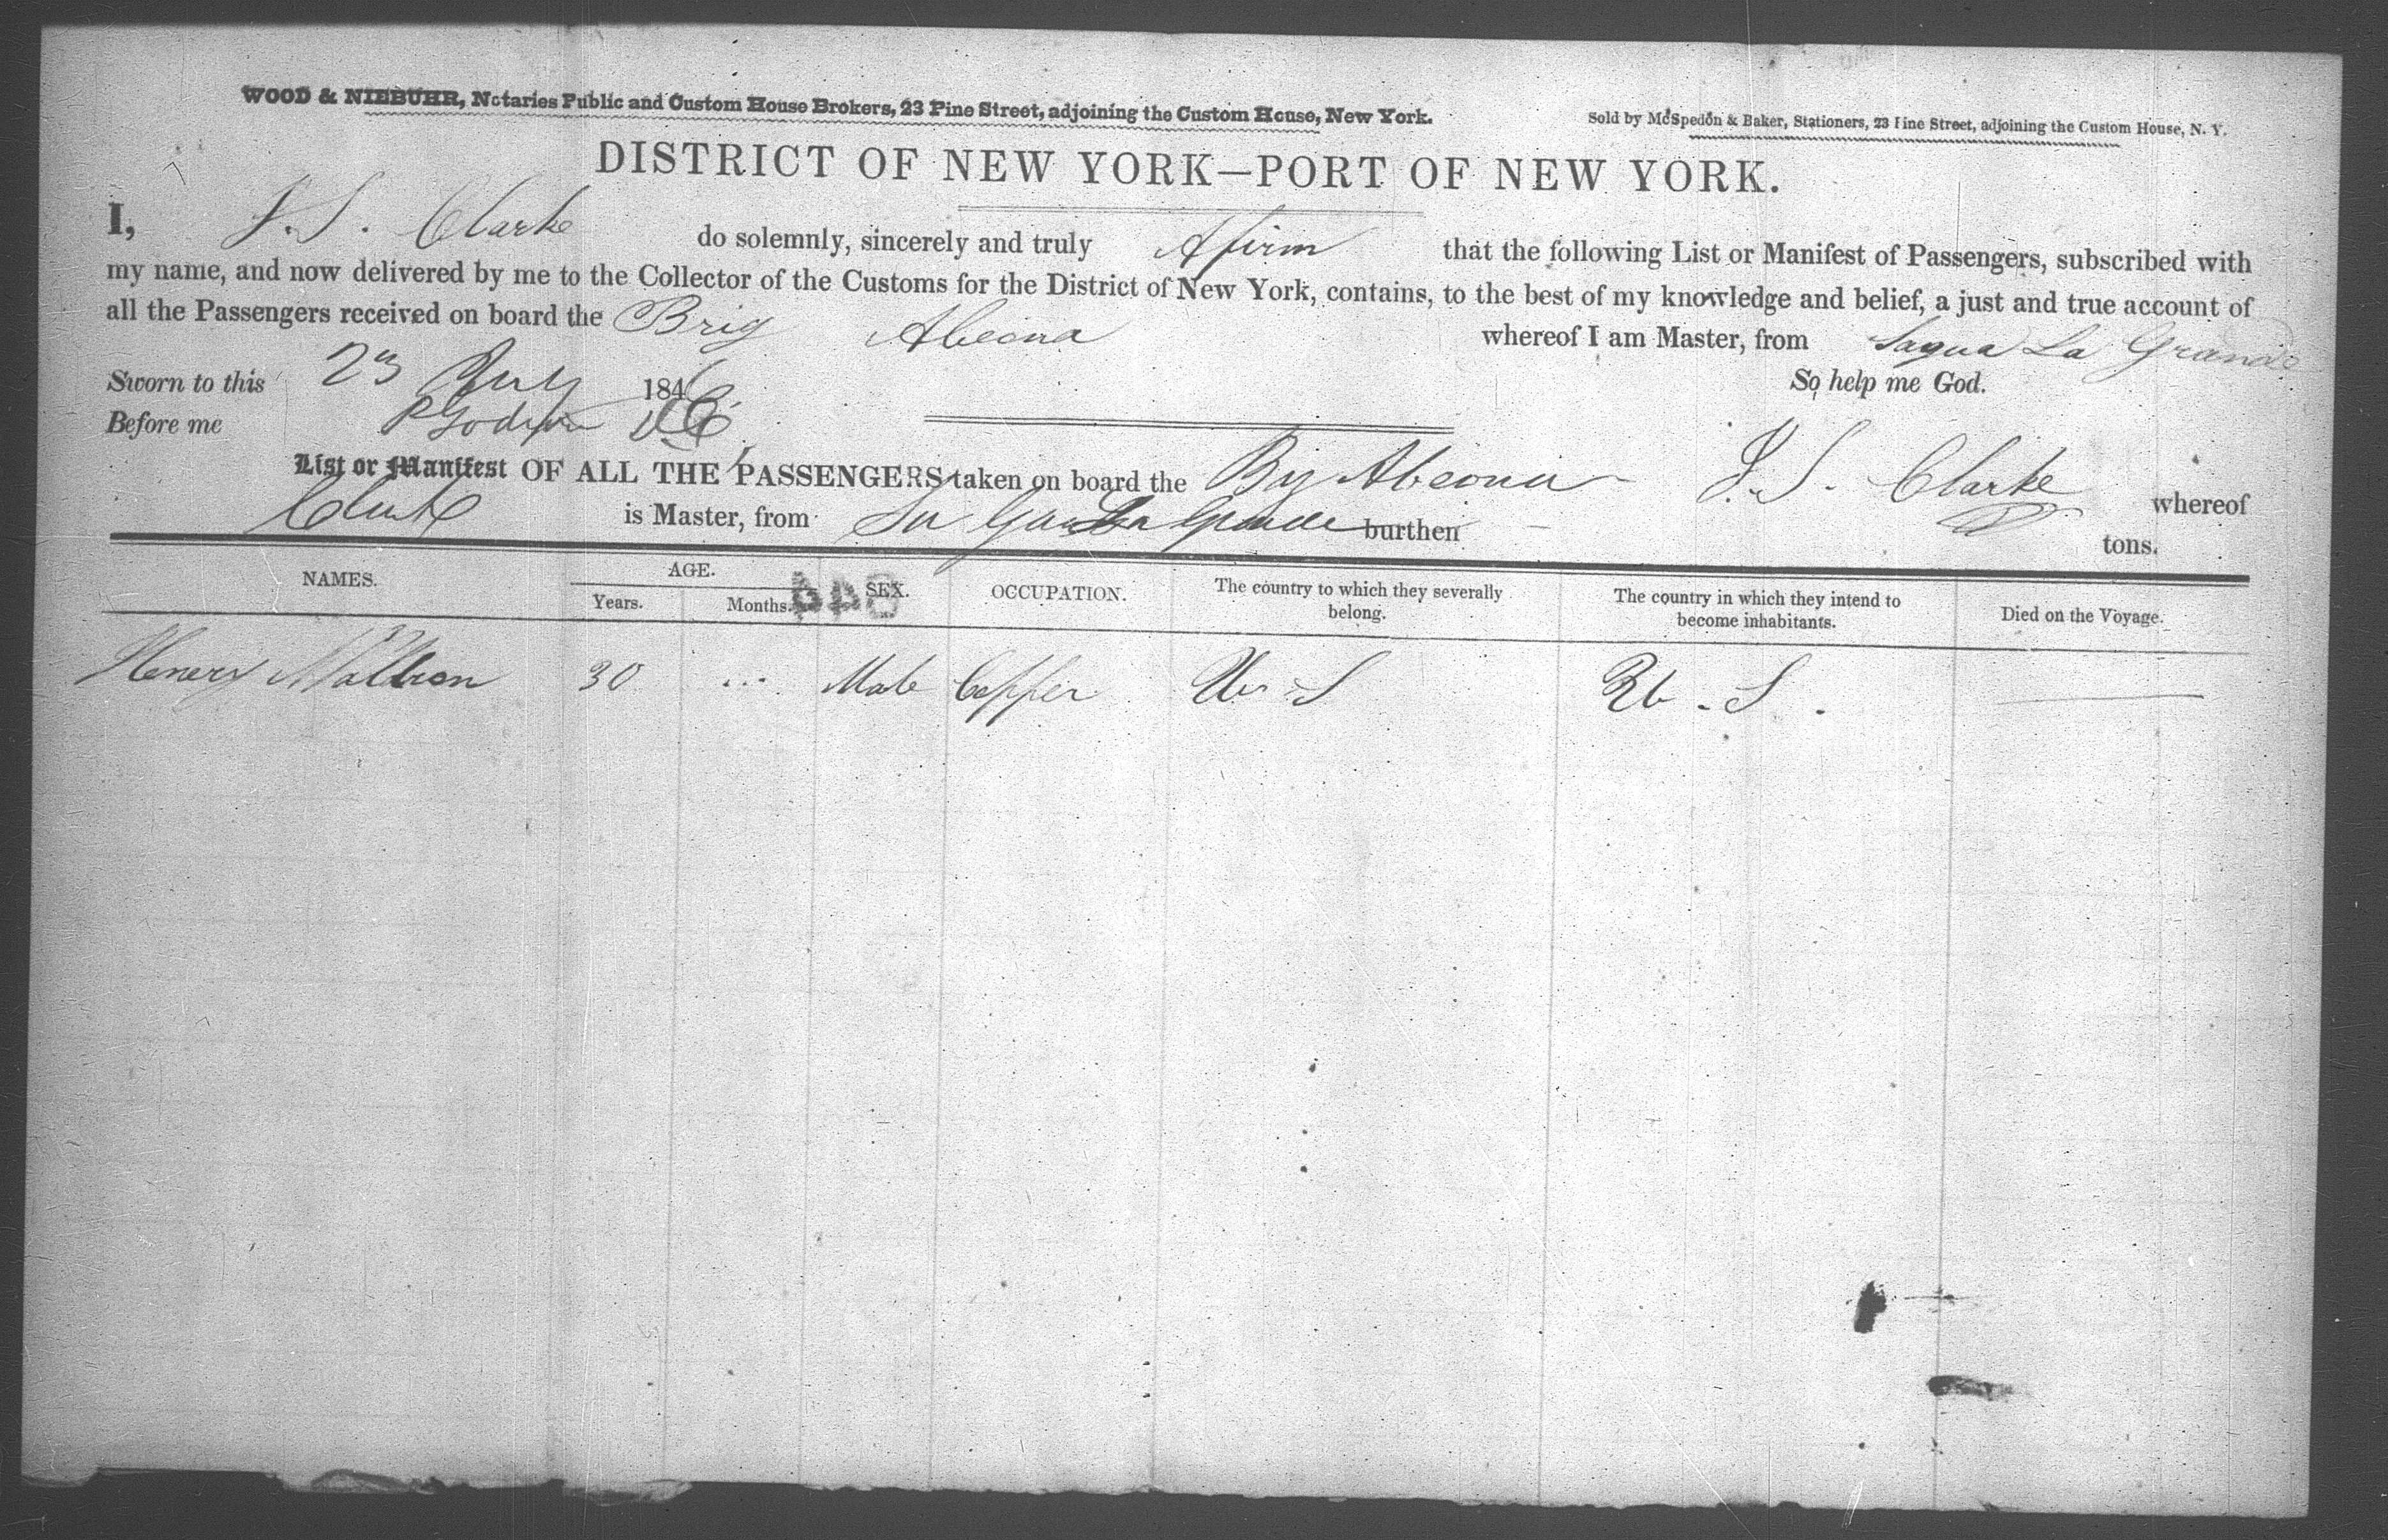 WOOD & NIEBUHR, Notaries Public and Custom House Brokers, 23 Pine Street, adjoining the Custom House, New York.
Sold by McSpedon & Baker, Stationers, 23 Pine Street, adjoining the Custom House, N. Y.
DISTRICT OF NEW YORK—PORT OF NEW YORK.
I, J. S. Clarke do solemnly, sincerely and truly Afirm that the following List or Manifest of Passengers, subscribed with
my name, and now delivered by me to the Collector of the Customs for the District of New York, contains, to the best of my knowledge and belief, a just and true account of
all the Passengers received on board the Brig Abeona whereof I am Master, from Sagua La Grande
Sworn to this 23 July 1846 So help me God.
Before me
List or Manifest OF ALL THE PASSENGERS taken on board the Brig Abeona J. S. Clarke whereof
is Master, from La Grande burthen tons.
NAMES. AGE. SEX. OCCUPATION. The country to which they severally belong. The country in which they intend to become inhabitants. Died on the Voyage.
Years. Months.
Henery 30 ... Male U. S U. S.